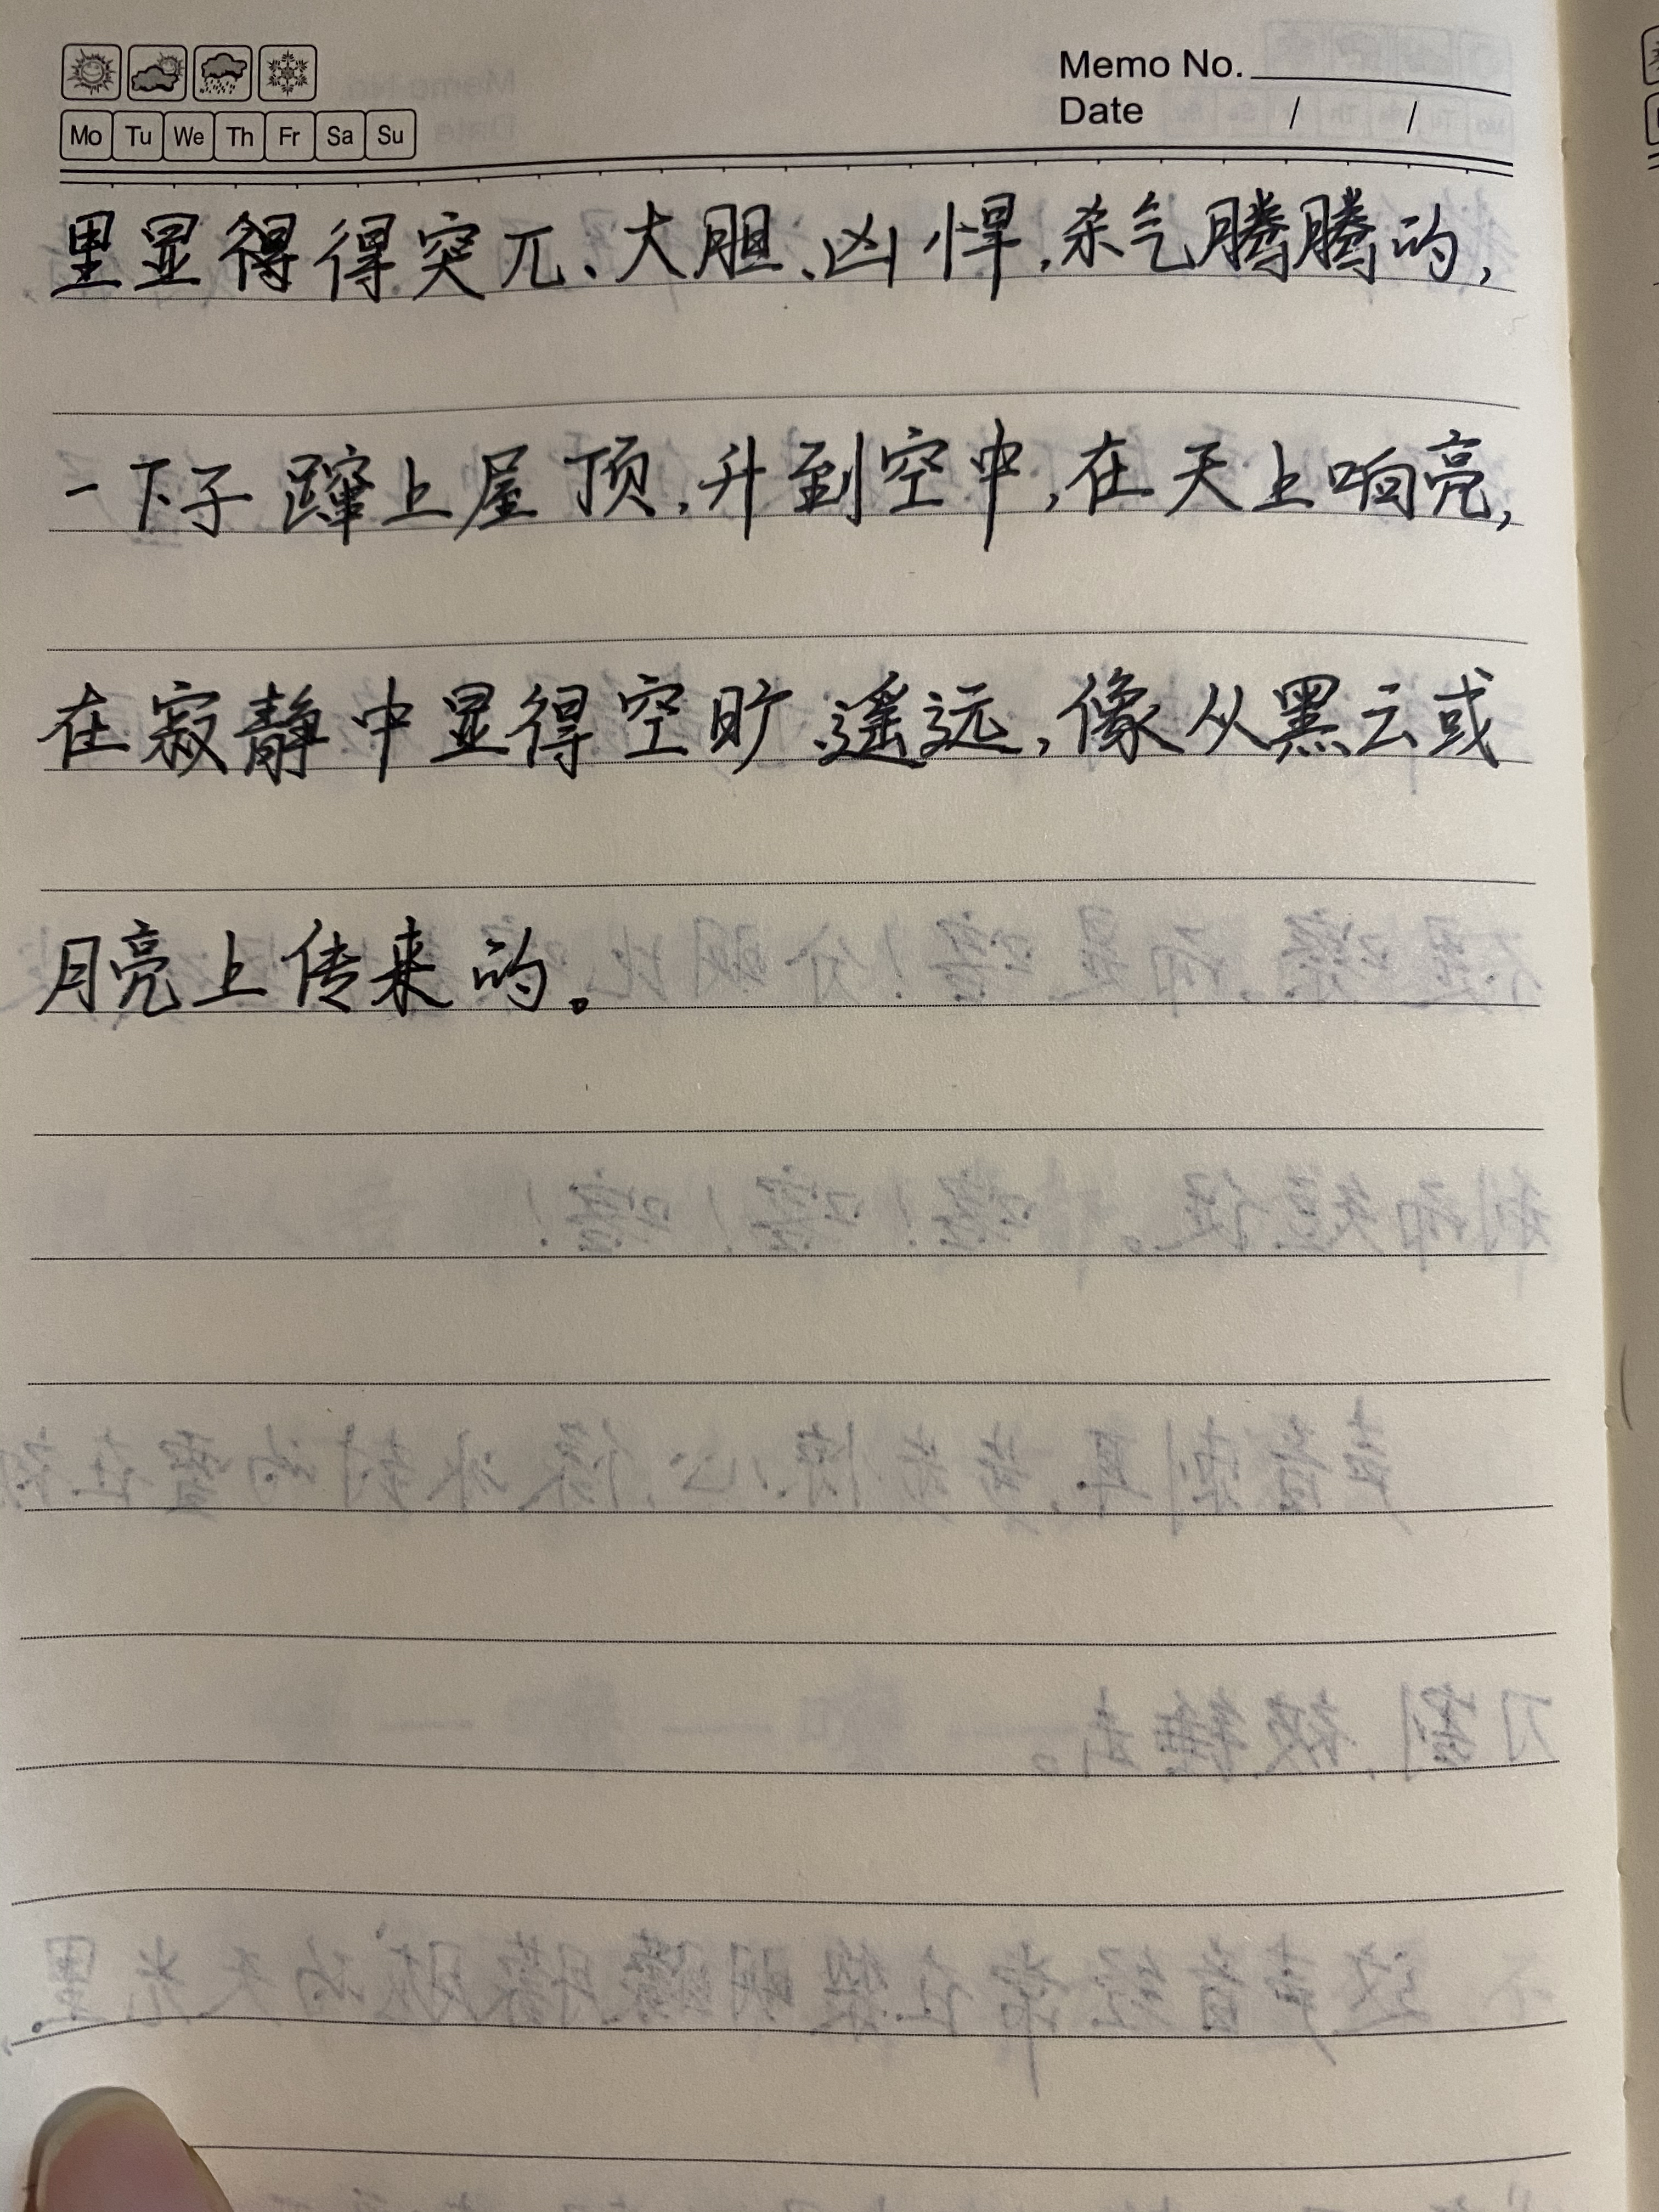 Memo No.
Mo Tu We Th Fr Sa Su
Date / /
里显得得突兀、大胆、凶悍,杀气腾腾的,
一下子蹿上屋顶,升到空中,在天上响亮,
在寂静中显得空旷、遥远,像从黑云或
月亮上传来的。